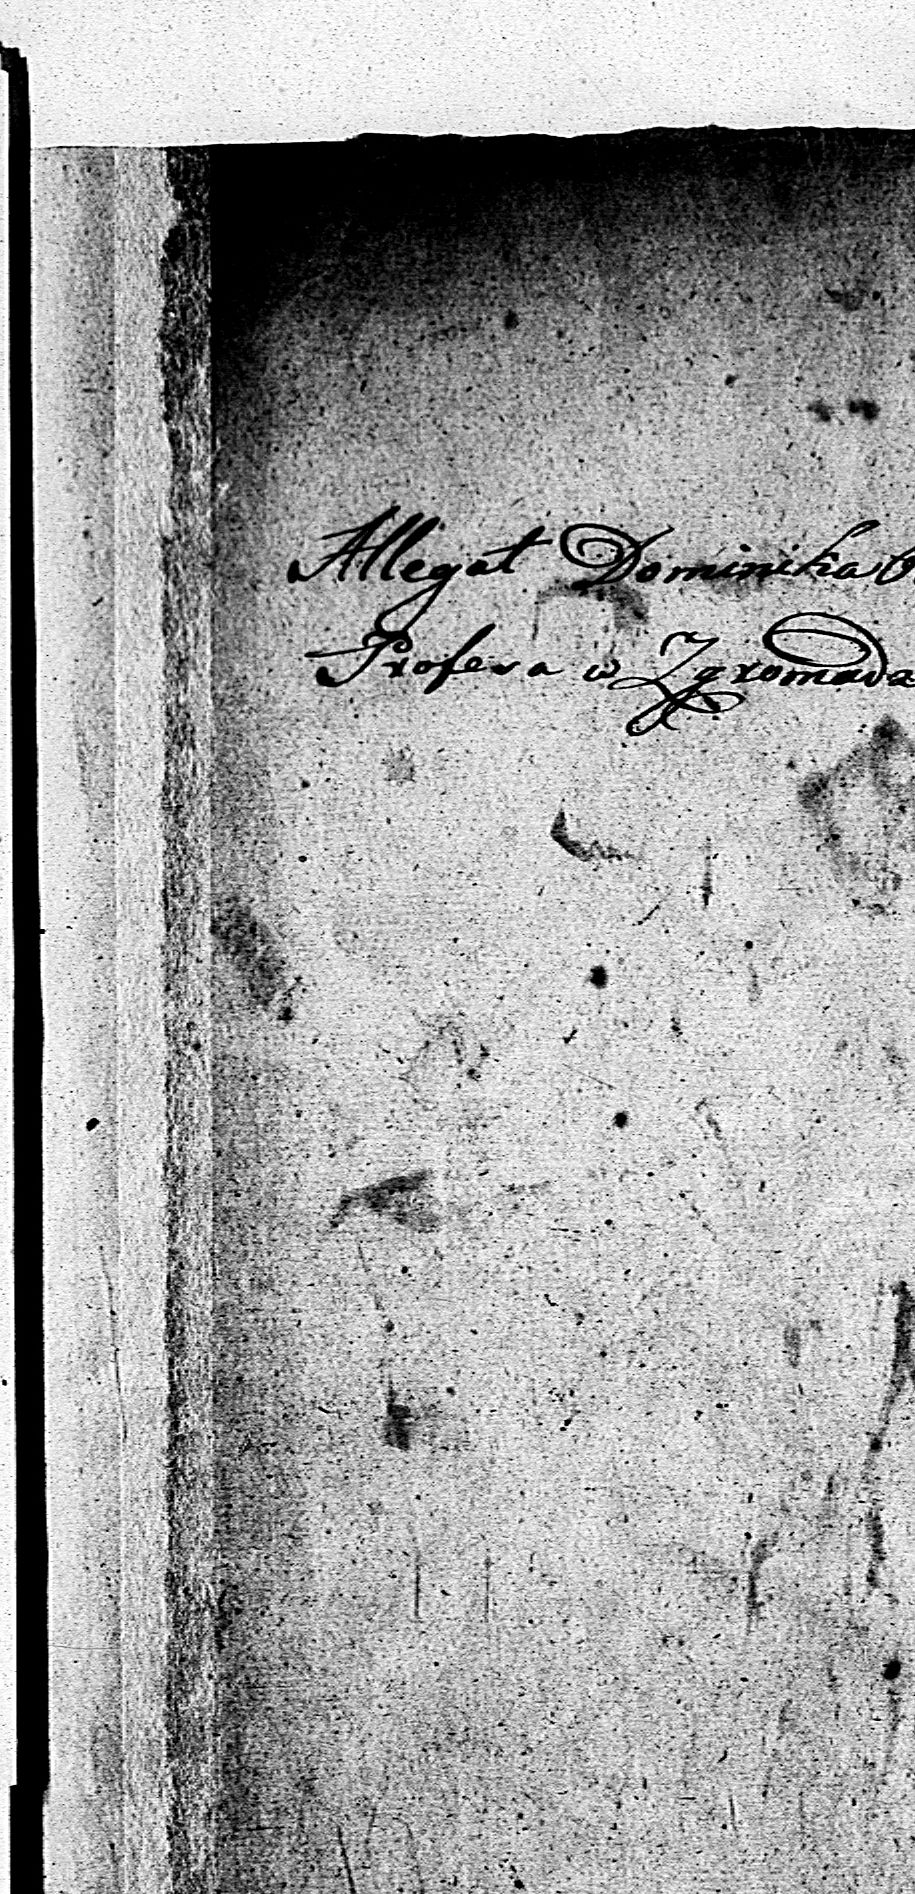 Allegat Dominika
Profesa w Zgromadze